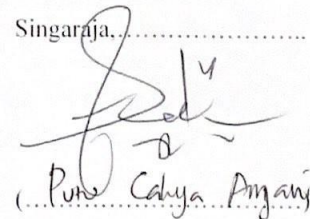 Singaraja,..............................
(..Putu Cahya Anjani)